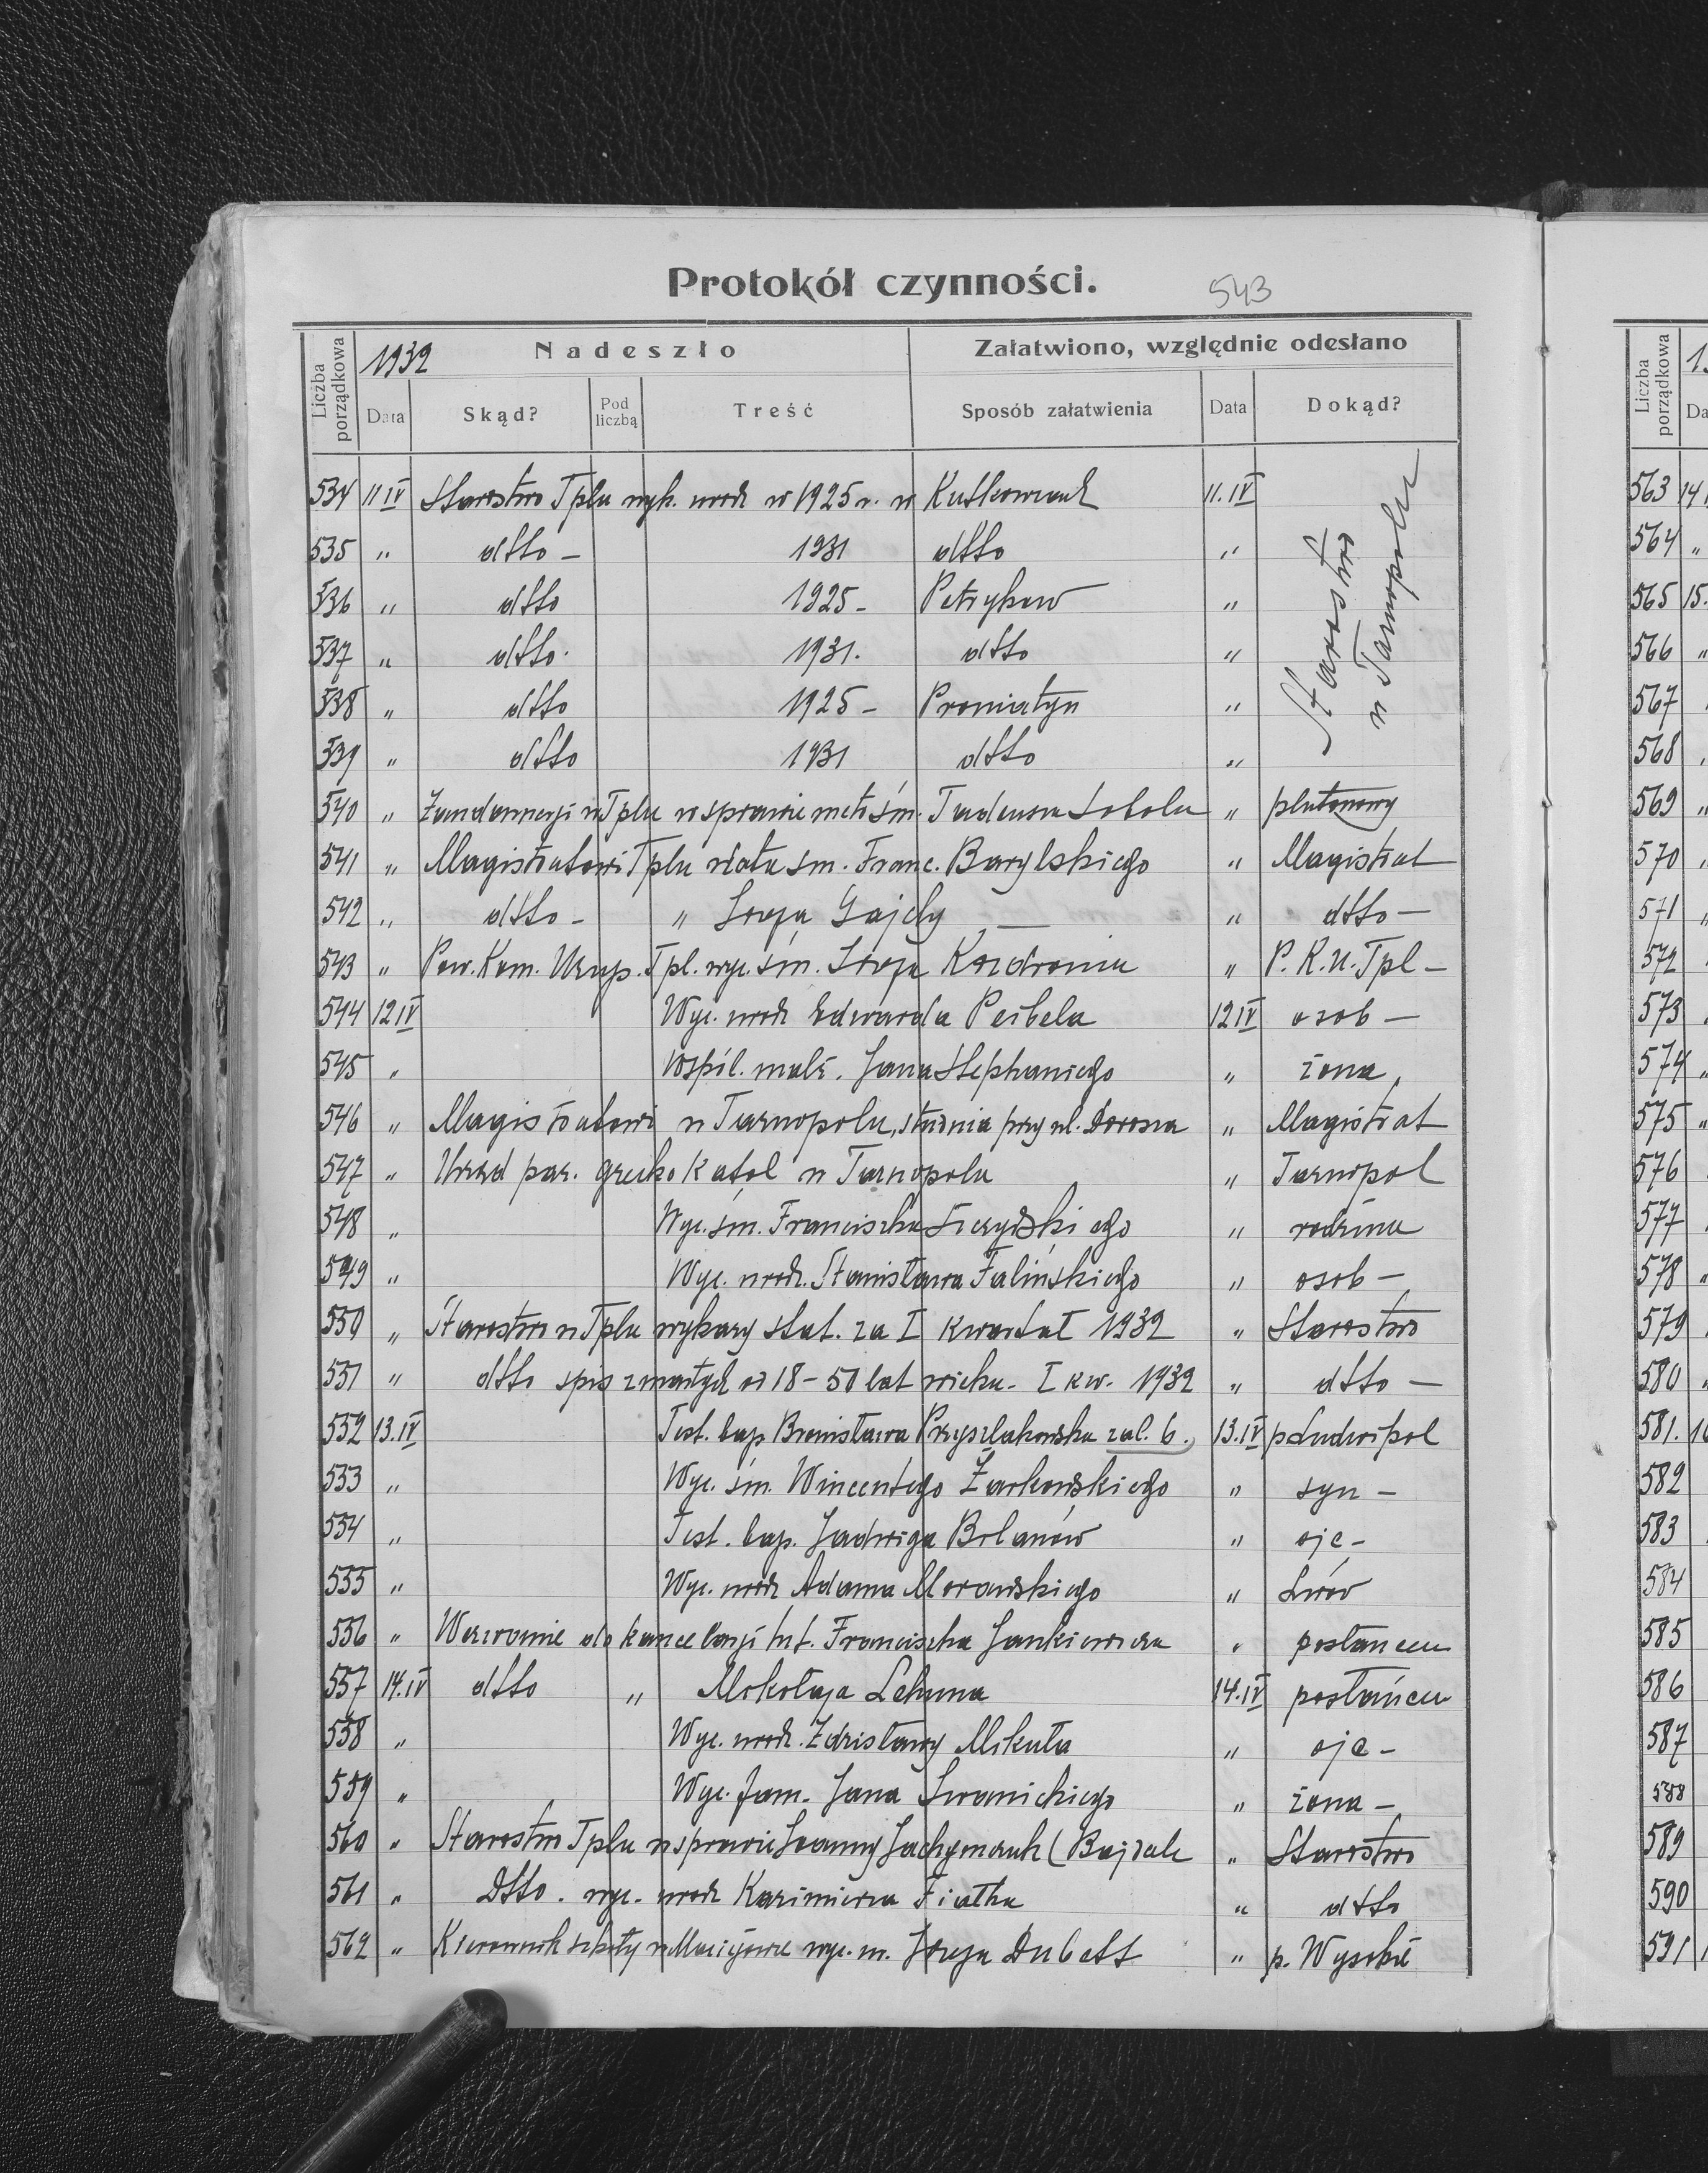 Protokół czynności.
543
Liczba porządkowa
1939
Nadeszło
Załatwiono, względnie odesłano
Data
Skąd?
Pod liczbą
Treść
Sposób załatwienia
Data
Dokąd?
534 11 IV Starostwo Tplu wyk. urodz w 1925 r. w Kutkowcach 11.IV
535 " dtto - 1931 dtto "
536 " dtto 1925 - Petryków "
537 " dtto. 1931. dtto "
538 " dtto 1925 - Proniatyn "
539 " dtto 1931 dtto "
Starostwo w Tarnopolu
540 " Żandarmerji w Tplu w sprawie metr śm. Tadeusza Sobola " plutonowy
541 " Magistratowi Tplu data śm. Franc. Barylskiego " Magistrat
542 " dtto - " Józefa Gajdy — " dtto —
543 " Pow. Kom. Uzup. Tpl. wyc. śm. Józefa Kozdronia " P. K. U. Tpl -
544 12 IV Wyc. urodz Edwarda Peibela 12 IV osob —
545 " małż. Jana Stephaniego " żona
546 " Magistratowi w Tarnopolu, studnia przy ul. " Magistrat
547 " Urząd par. grecko katol w Tarnopolu " Tarnopol
548 " Wyc. śm. Franciszka " rodzina
549 " Wyc. urodz. Stanisława Falińskiego " osob —
550 " Starostwo w Tplu wykazy stat. za I kwartał 1932 " Starostwo
551 " dtto spis zmarłych od 18 - 50 lat wieku - I kw. 1932 " dtto —
552 13.IV Test. bap Bronisława Przyszlakowska zal. 6. 13.IV p Ludwipol
553 " Wyc. śm. Wincentego Żarkowskiego " syn -
554 " Test. bap. Jadwiga " ojc -
555 " Wyc. urodz Adama Morawskiego " Lwów
556 " Wezwanie do kancelarji Int. Franciszka Jankiewicza " posłańcem
557 14.IV dtto " Mikołaja Lehuna 14.IV posłańcem
558 " Wyc. urodz. Zdzisławy Mikuła " ojc -
559 " Wyc. fam. Jana Iwanickiego " żona -
560 " Starostwo Tplu w sprawie Joanny Jachymczuk ( " Starostwo
561 " Dtto. wyc. urodz Kazimierza Fiałka " dtto
562 " Kierownik szkoły w wyc. m. Józefa Dubett " p. Wysokie
Liczba porządkowa
563 14
564 "
565 15.
566 "
567
568
569 "
570 "
571 "
572
573
574 "
575 "
576
577
578 "
579
580
581. 16
582
583
584
585
586
587
588
589
590
591